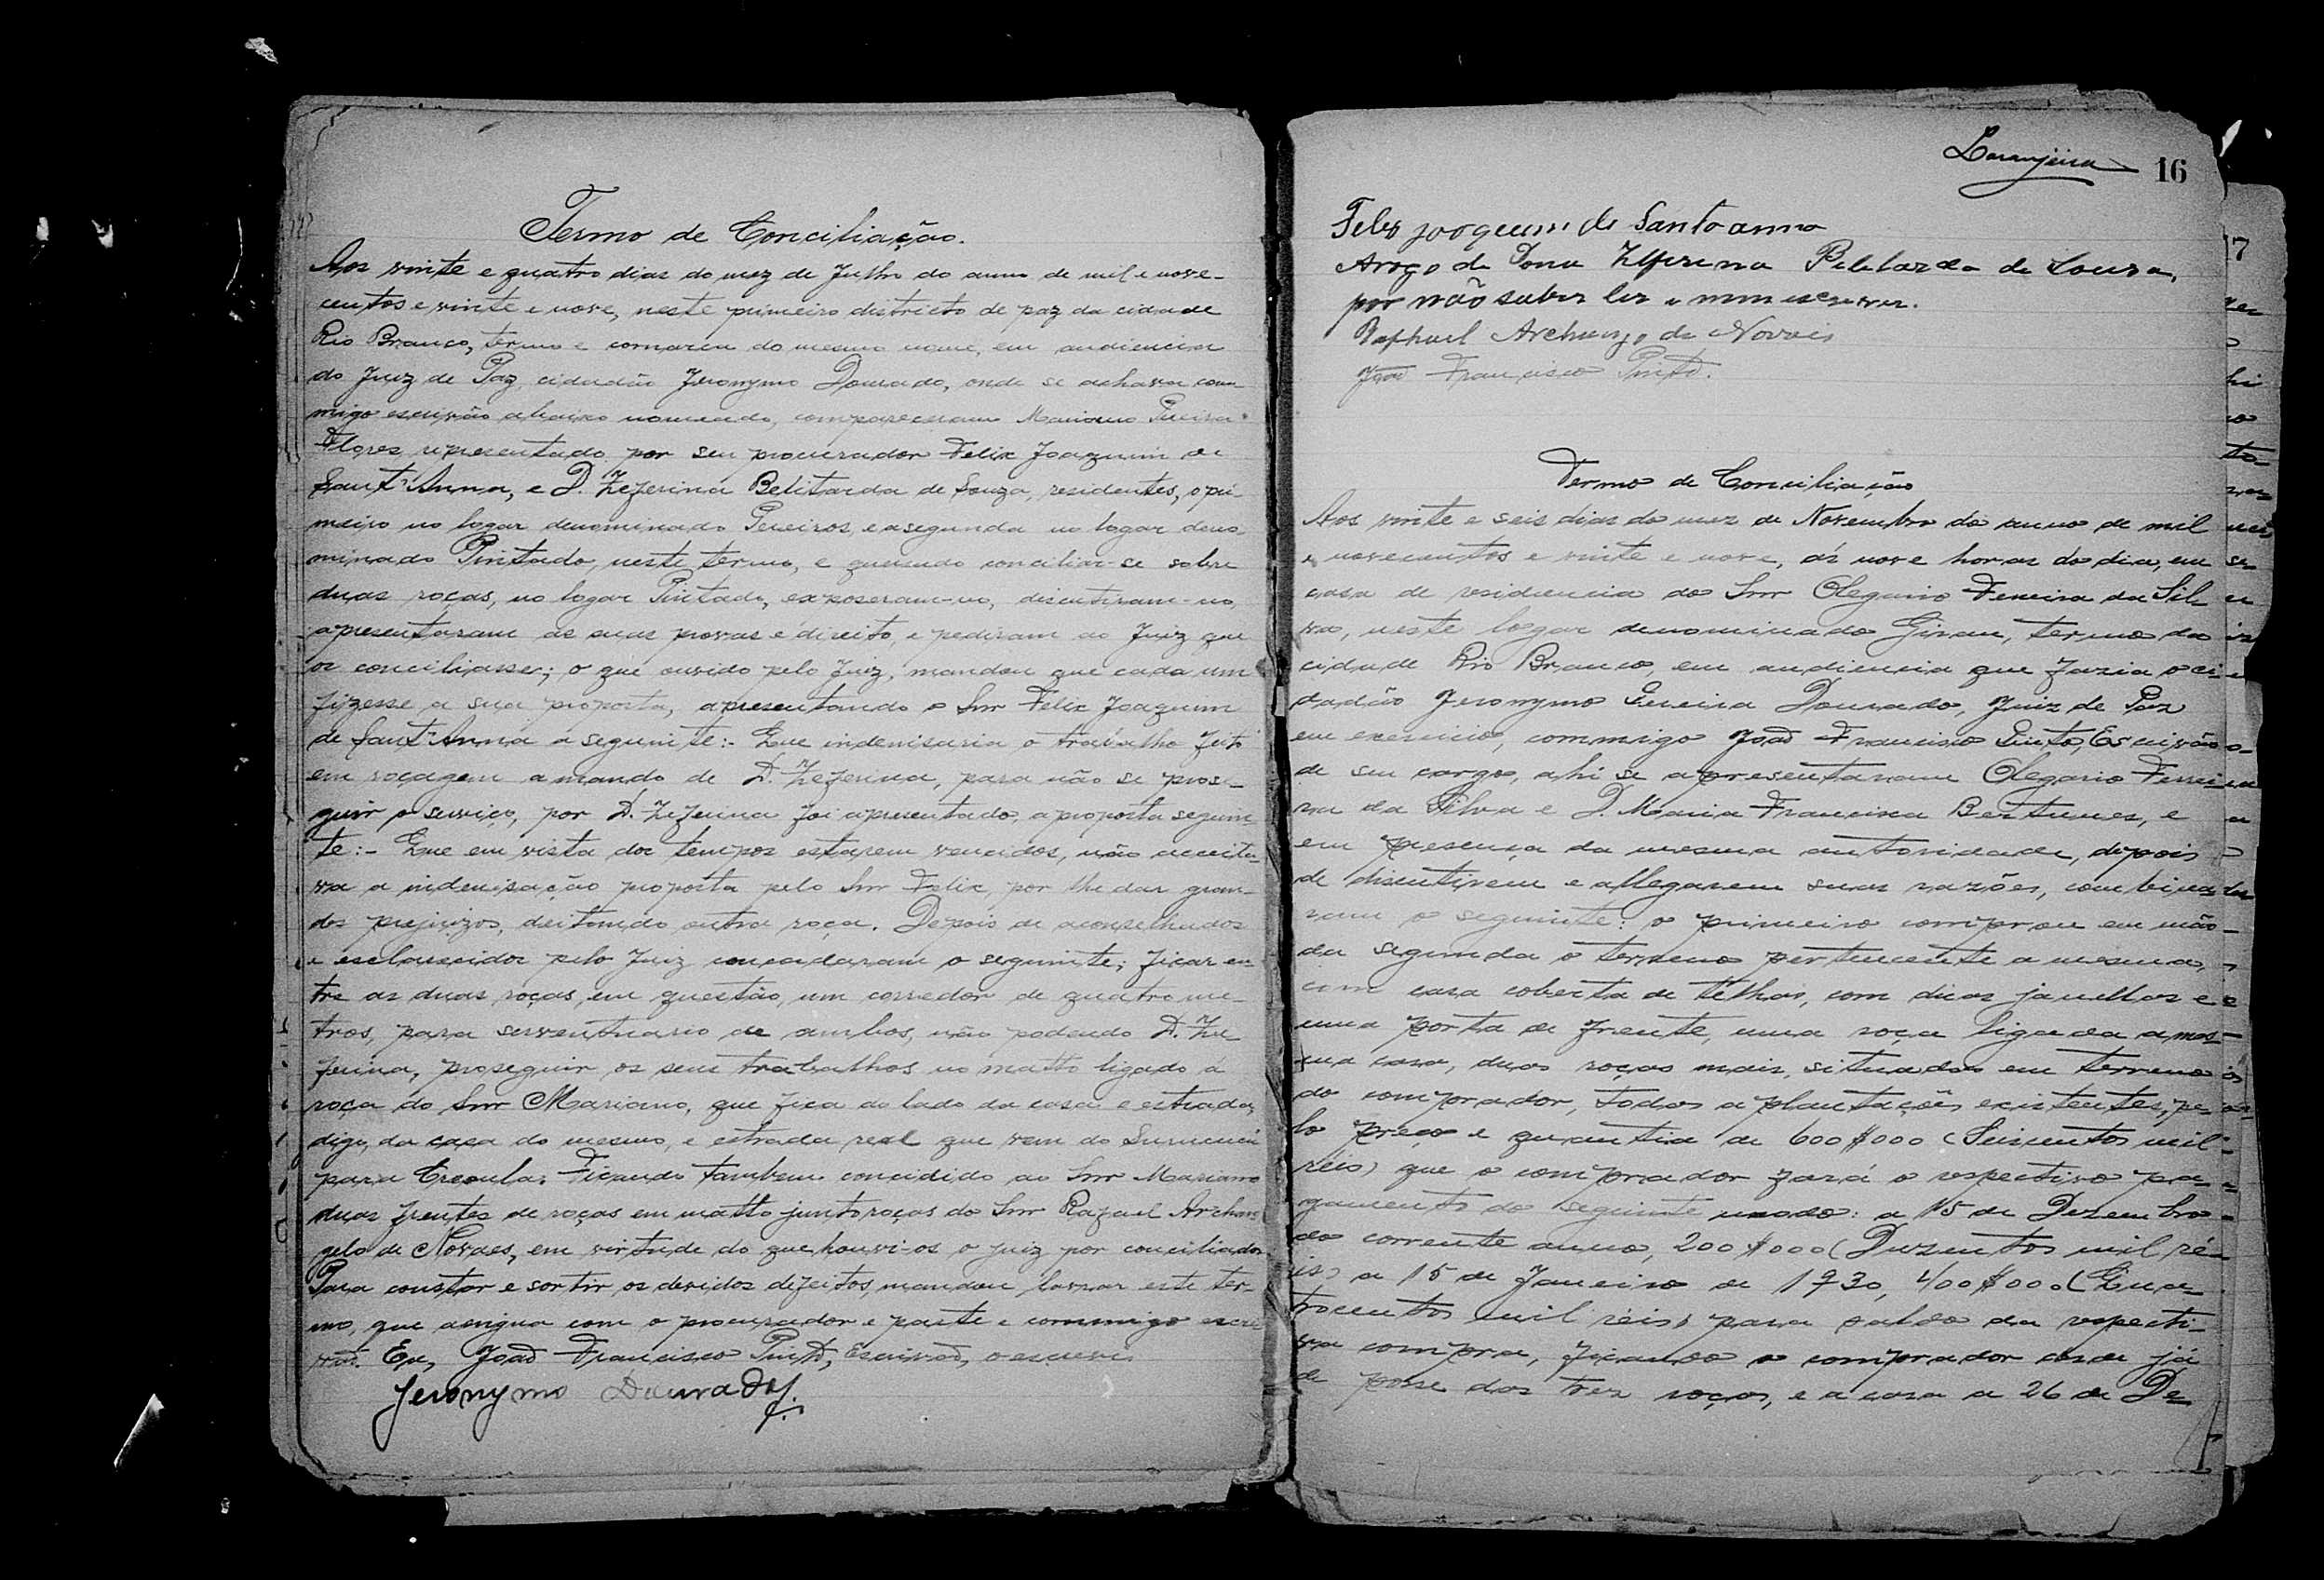 Termo de Conciliação.
Aos vinte e quatro dias do mez de Julho do anno de mil e nove-
centos e vinte e nove, neste primeiro districto de paz da cidade
Rio Branco, termo e comarca do mesmo nome, em audiencia
do Juiz de Paz, cidadão Jeronymo Dourado, onde se achava com-
migo escrivão abaixo nomeado, compareceram Mariano Pereira
Flores representado por seu procurador Felix Joaquim de
Sant'Anna, e D. Zeferina Belitarda de Souza, residentes, o pri-
meiro no logar denominado Pereiros, e a segunda no logar deno-
minado Pintado, neste termo, e querendo conciliar-se sobre
duas roças, no logar Pintado, expozeram-no, discutiram-no,
apresentaram as suas provas e direito, e pediram ao Juiz que
os conciliasse; o que ouvido pelo Juiz, mandou que cada um
fizesse a sua proposta, apresentando o Snr Felix Joaquim
de Sant'Anna a seguinte:- Que indenisaria o trabalho feito
em roçagem a mando de D. Zeferina, para não se prose-
guir o serviço, por D. Zeferina foi apresentado a proposta seguin-
te:- Que em vista dos tempos estarem vencidos, não acceita-
va a indenisação proposta pelo Snr Felix, por lhe dar gran-
des prejuizos, deitando outra roça. Depois de aconselhados
e esclarecidos pelo Juiz concordaram o seguinte; ficar en-
tre as duas roças, em questão, um corredor de quatro me-
tros, para serventuario de ambos, não podendo D. Ze
ferina, proseguir os seus trabalhos no matto ligado á
roça do Snr Mariano, que fica do lado da casa e estrada,
digo, da casa do mesmo, e estrada real que vem do
para Ficando tambem concidido ao Snr Mariano
duas frentes de roças em matto junto roças do Snr Rafael Archan-
gelo de Novaes, em virtude do que houve-os o juiz por conciliados
Para constar e sortir os devidos difeitos, mandou lavrar este ter-
mo, que assigna com o procurador e parte e commigo escri
vão. Eu, João Francisco Pinto, Escrivão, o escrevi.
Jeronymo Dourado
Laranjeira 16
Felex joaquim de Santo anna
Arogo de Dona Zeferina Belitarda de Souza,
por não saber ler e nem escrever.
Raphael Archanzo de Novais
João Francisco Pinto.
Termo de Conciliação
Aos vinte e seis dias do mez de Novembro do anno de mil
e novecentos e vinte e nove, ás nove horas do dia, em
casa de residencia do Snr Olegario Ferreira da Sil-
va, neste logar denominado Girau, termo da
cidade Rio Branco, em audiencia que fazia o ci-
dadão Jeronymo Pereira Dourado, Juiz de Paz
em exercicio, commigo João Francisco Pinto, Escrivão
de seu cargo, ahi se apresentaram Olegario Ferrei-
ra da Silva e D. Maria Francisca Bertunes, e
em presença da mesma autoridade, depois
de discutirem e allegarem suas razões, combina-
ram o seguinte: o primeiro comprou em mão
da segunda o terreno pertencente a mesma,
com casa coberta de telhas, com duas janellas e
uma porta de frente, uma roça ligada a mes-
ma casa, duas roças mais, situadas em terreno
do comprador, todas a plantações existentes, pe-
lo preço e quantia de 600$000 (Seiscentos mil
réis) que o comprador fará o respectivo pa-
gamento do seguinte modo: a 15 de Dezembro
do corrente anno, 200$000 (Duzentos mil ré-
is) a 15 de Janeiro de 1930, 400$000 (Qua-
trocentos mil réis) para saldo da respecti-
va compra, ficando o comprador desde já
de posse das tres roças, e a casa a 26 de De-
17